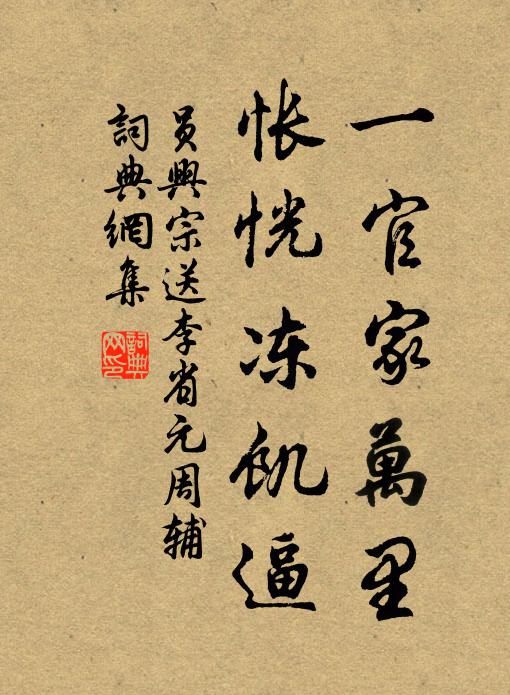 一官家萬里
怅恍冻飢逼
员興宗送李省元周辅
詞典網集
詞典网印